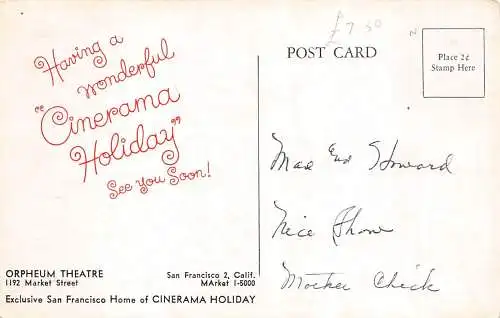 Having a
wonderful
"Cinerama
Holiday"
See you Soon!
ORPHEUM THEATRE
1192 Market Street
San Francisco 2, Calif.
MArket 1-5000
Exclusive San Francisco Home of CINERAMA HOLIDAY
£7.50
N
POST CARD
Place 2¢
Stamp Here
Max and Howard
Nice Show
Mother Chick